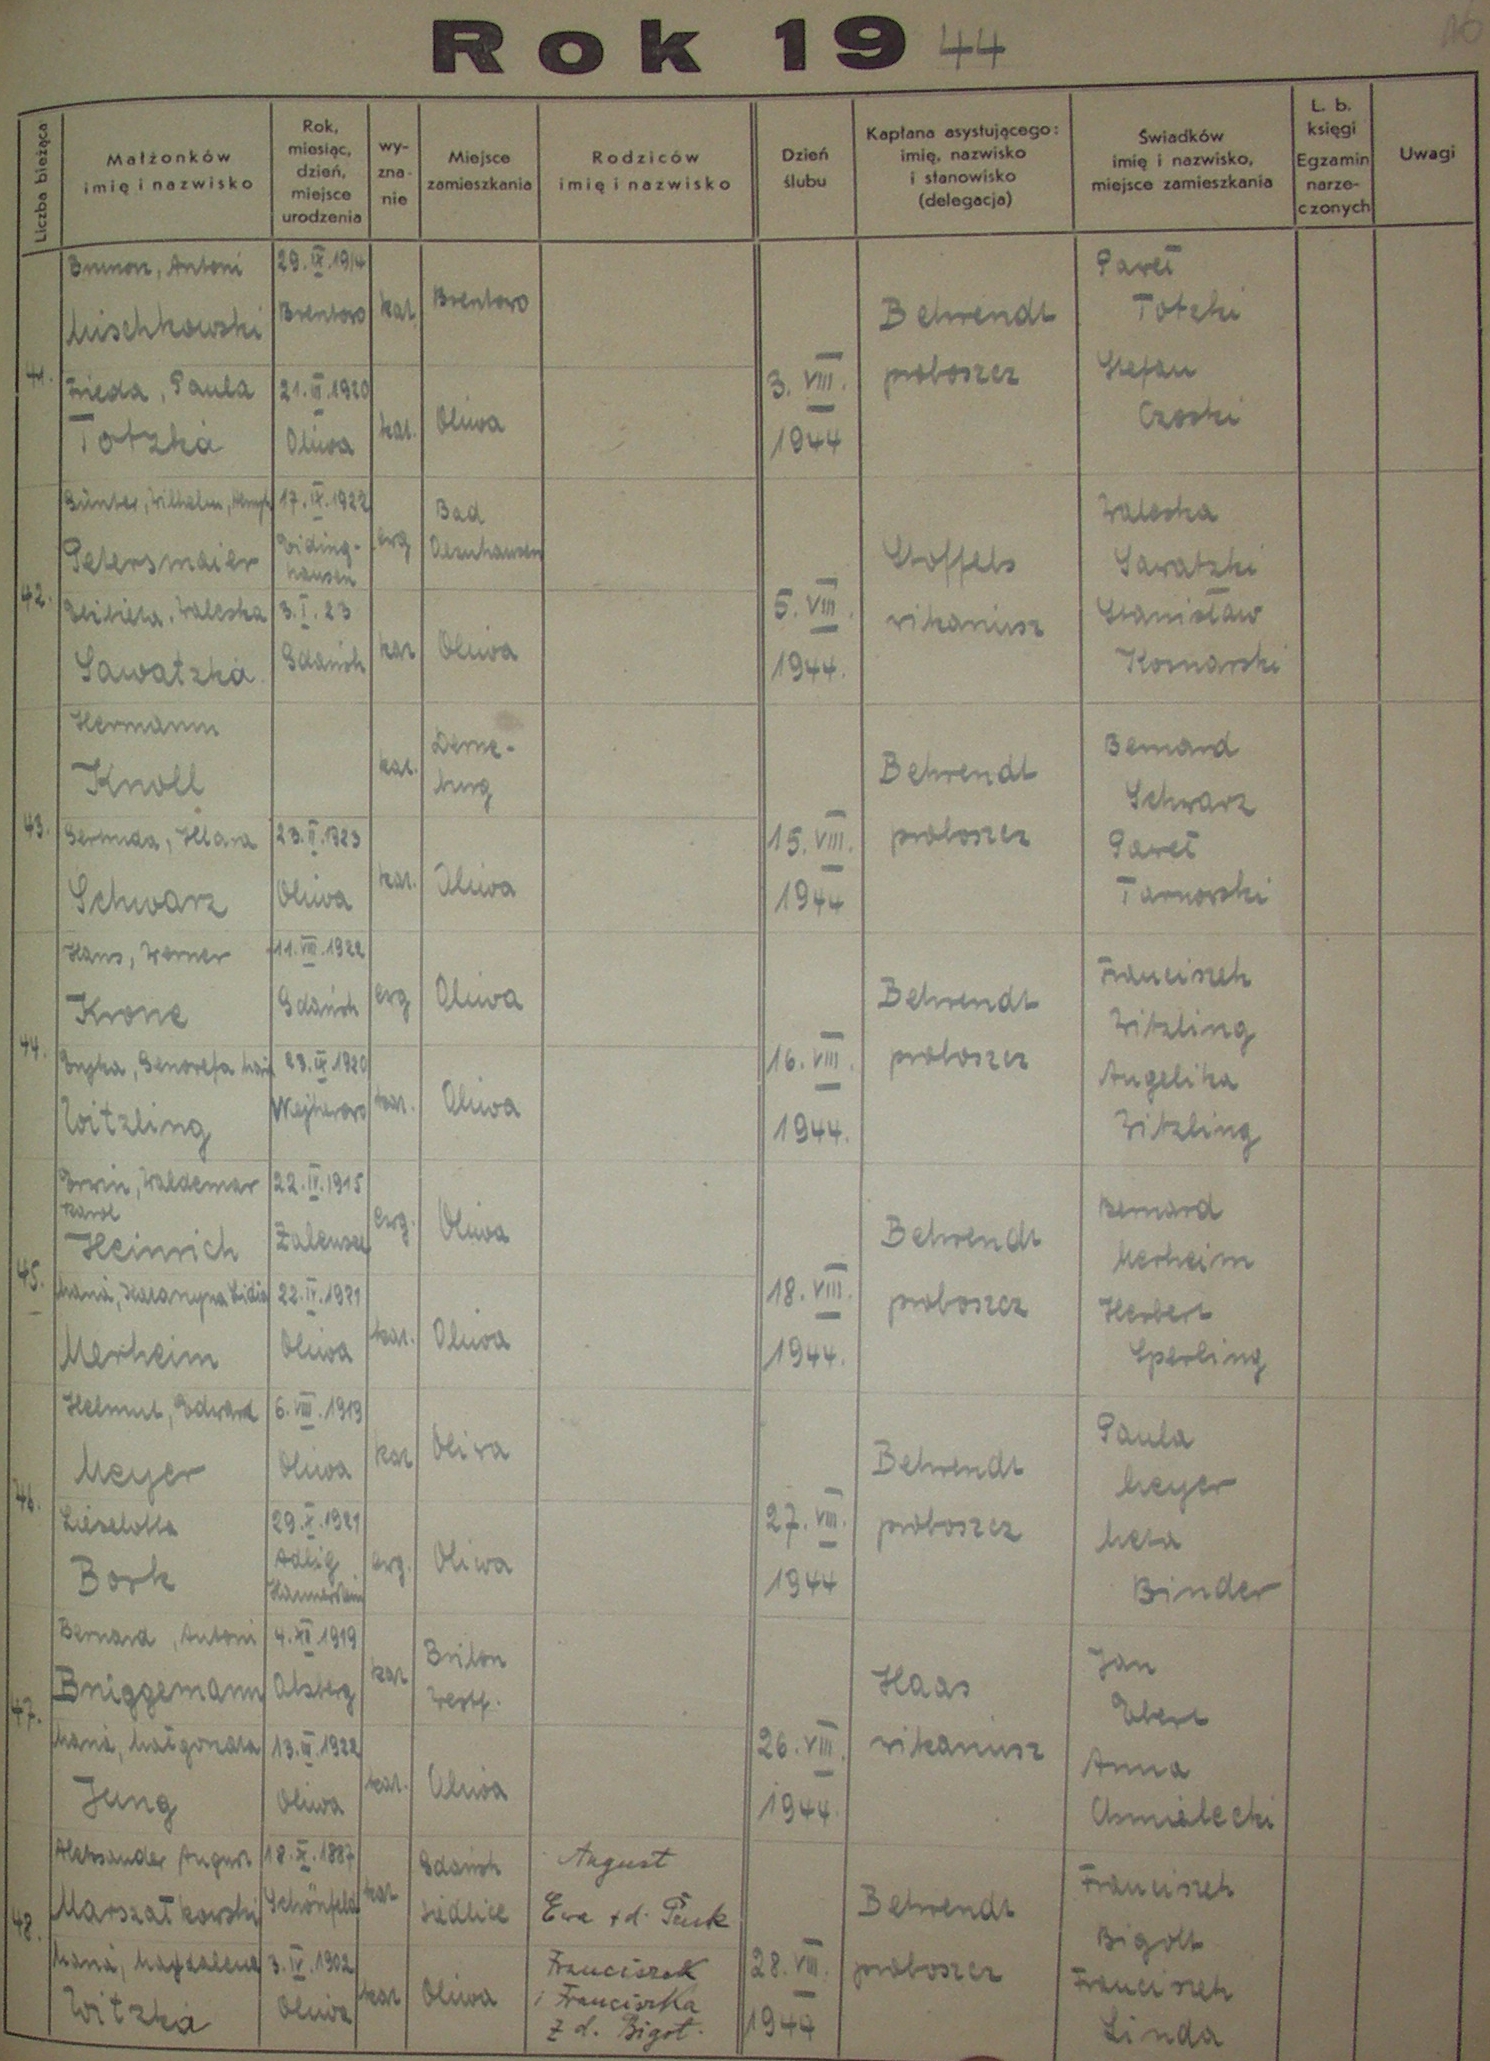 Rok 1944
16
Liczba bieżąca
Małżonków
imię i nazwisko
Rok,
miesiąc,
dzień,
miejsce
urodzenia
wy-
zna-
nie
Miejsce
zamieszkania
Rodziców
imię i nazwisko
Dzień
ślubu
Kapłana asystującego:
imię, nazwisko
i stanowisko
(delegacja)
Świadków
imię i nazwisko,
miejsce zamieszkania
L. b.
księgi
Egzamin
narze-
czonych
Uwagi
41.
Brunon, Antoni
Mischkowski
29. IX. 1914
Brentowo
kat.
Brentowo
Frieda, Paula
Totzka
21. III. 1920
Oliwa
kat.
Oliwa
3. VIII.
1944
Behrendt
proboszcz
Paweł
Totzki
Stefan
Czoski
42.
Günter, Wilhelm,
Petersmaier
17. IX. 1922
Widing-
hausen
ewg
Bad
Oeynhausen
Elżbieta, Waleska
Sawatzka
3. I. 23
Gdańsk
kat
Oliwa
5. VIII.
1944.
Stoffels
wikariusz
Waleska
Sawatzki
Stanisław
Kosnarski
43.
Hermann
Knoll
kat.
Derne-
burg
Gertruda, Klara
Schwarz
23. II. 1923
Oliwa
kat.
Oliwa
15. VIII.
1944
Behrendt
proboszcz
Bernard
Schwarz
Paweł
Tarnowski
44.
Hans, Werner
Krone
11. VIII. 1922
Gdańsk
ewg
Oliwa
Eryka, Genowefa
Witzling
23. IX. 1920
Wejherowo
kat.
Oliwa
16. VIII.
1944.
Behrendt
proboszcz
Franciszek
Witzling
Angelika
Witzling
45.
Erwin, Waldemar
Karol
Heinrich
22. IV. 1915
ewg.
Oliwa
Maria, Katarzyna Lidia
Merheim
22. IV. 1921
Oliwa
kat.
Oliwa
18. VIII.
1944.
Behrendt
proboszcz
Bernard
Merheim
Herbert
Sperling
46.
Helmut, Edward
Meyer
6. VIII. 1919
Oliwa
kat
Oliwa
Lieselotte
Bork
29. X. 1921
Adlig
ewg.
Oliwa
27. VIII.
1944
Behrendt
proboszcz
Paula
Meyer
Meta
Binder
47.
Bernard, Antoni
Brüggemann
4. XII. 1919
Alsberg
kat
Brilon
Westf.
Maria, Małgorzata
Jung
13. III. 1922
Oliwa
kat.
Oliwa
26. VIII.
1944.
Haas
wikariusz
Jan
Ebert
Anna
Chmielecki
48.
Aleksander August
Marszałkowski
18. X. 1887
Schönfeld
kat
Gdańsk
Siedlice
August
Ewa z d.
Maria, Magdalena
Witzka
3. IV. 1902
Oliwa
kat
Oliwa
Franciszek
i Franciszka
z d. Bigot.
28. VIII.
1944
Behrendt
proboszcz
Franciszek
Bigott
Franciszek
Linda